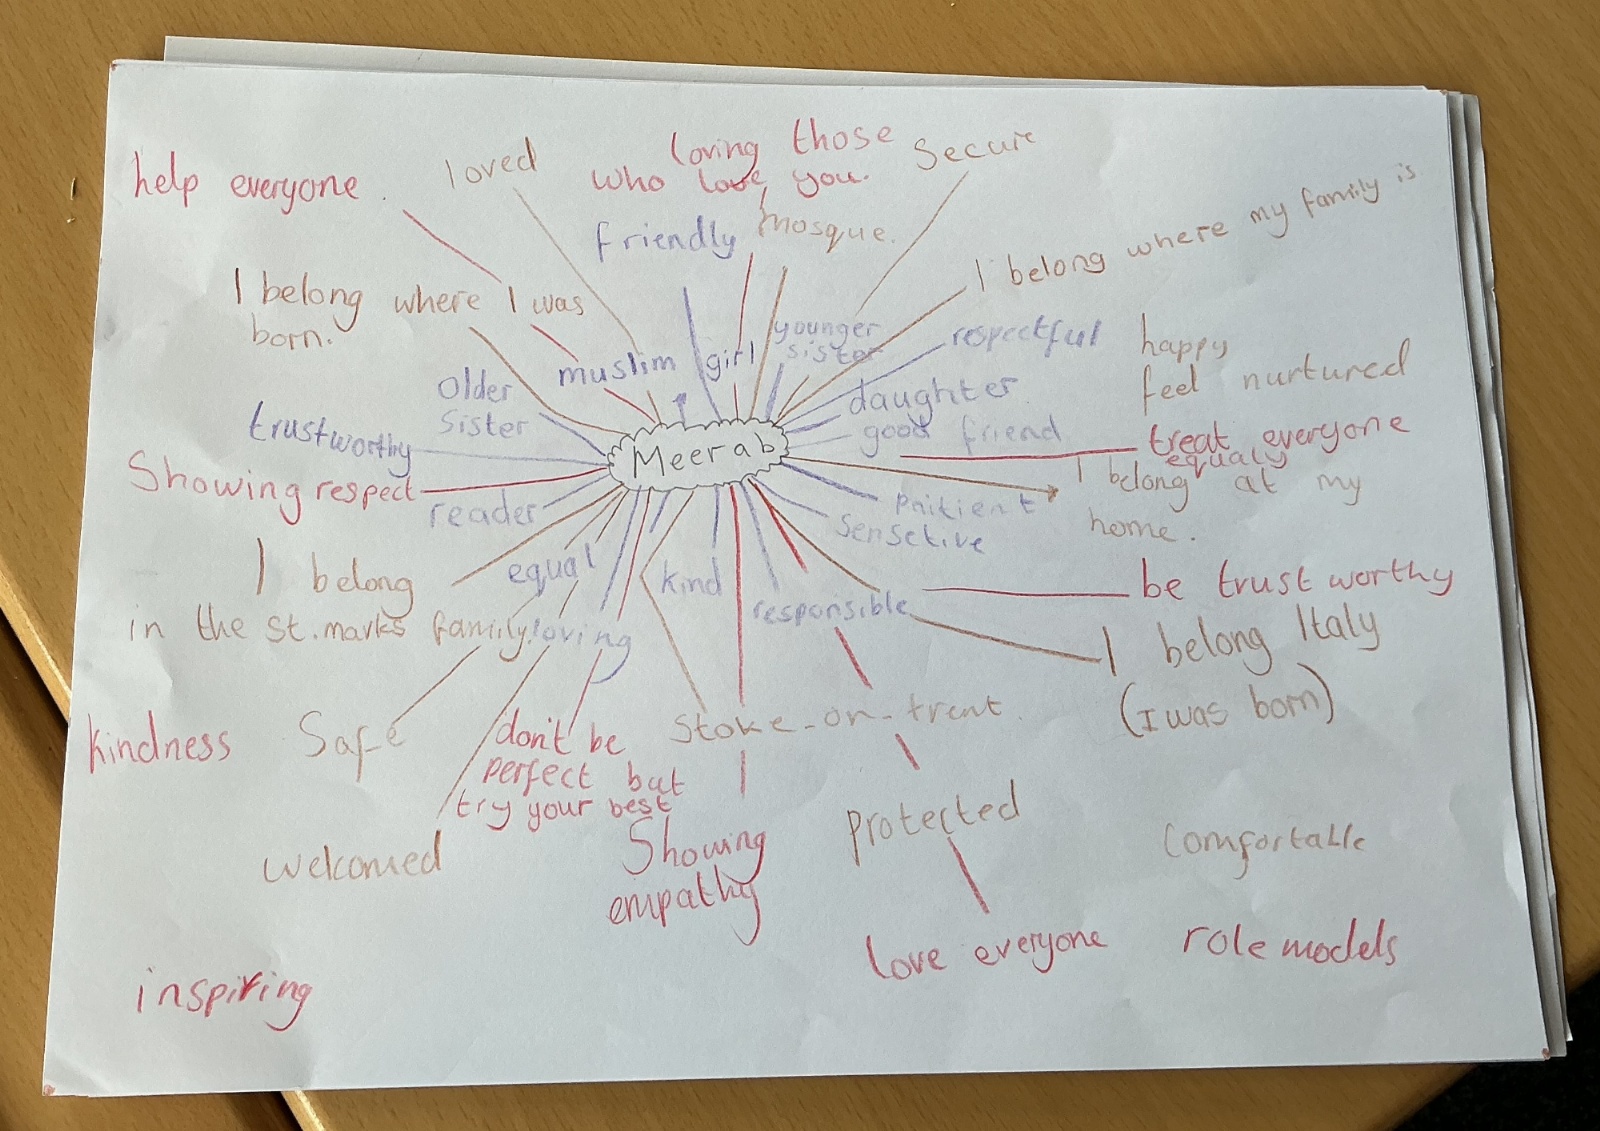 help everyone.
loved
loving those
who love you.
Secure
friendly
mosque.
I belong where my family is
I belong where I was
born.
muslim
girl
younger
sister
respectful
happy
feel nurtured
Older
Sister
daughter
good friend
trustworthy
Meerab
treat everyone
equaly
Showing respect
I belong at my
home.
reader
paitient
sensetive
equal
kind
responsible
be trust worthy
I belong
in the St. marks family.
loving
I belong Italy
(I was born)
kindness
Safe
don't be
perfect but
try your best
Stoke-on-trent
welcomed
Showing
empathy
protected
comfortable
love everyone
role models
inspiring